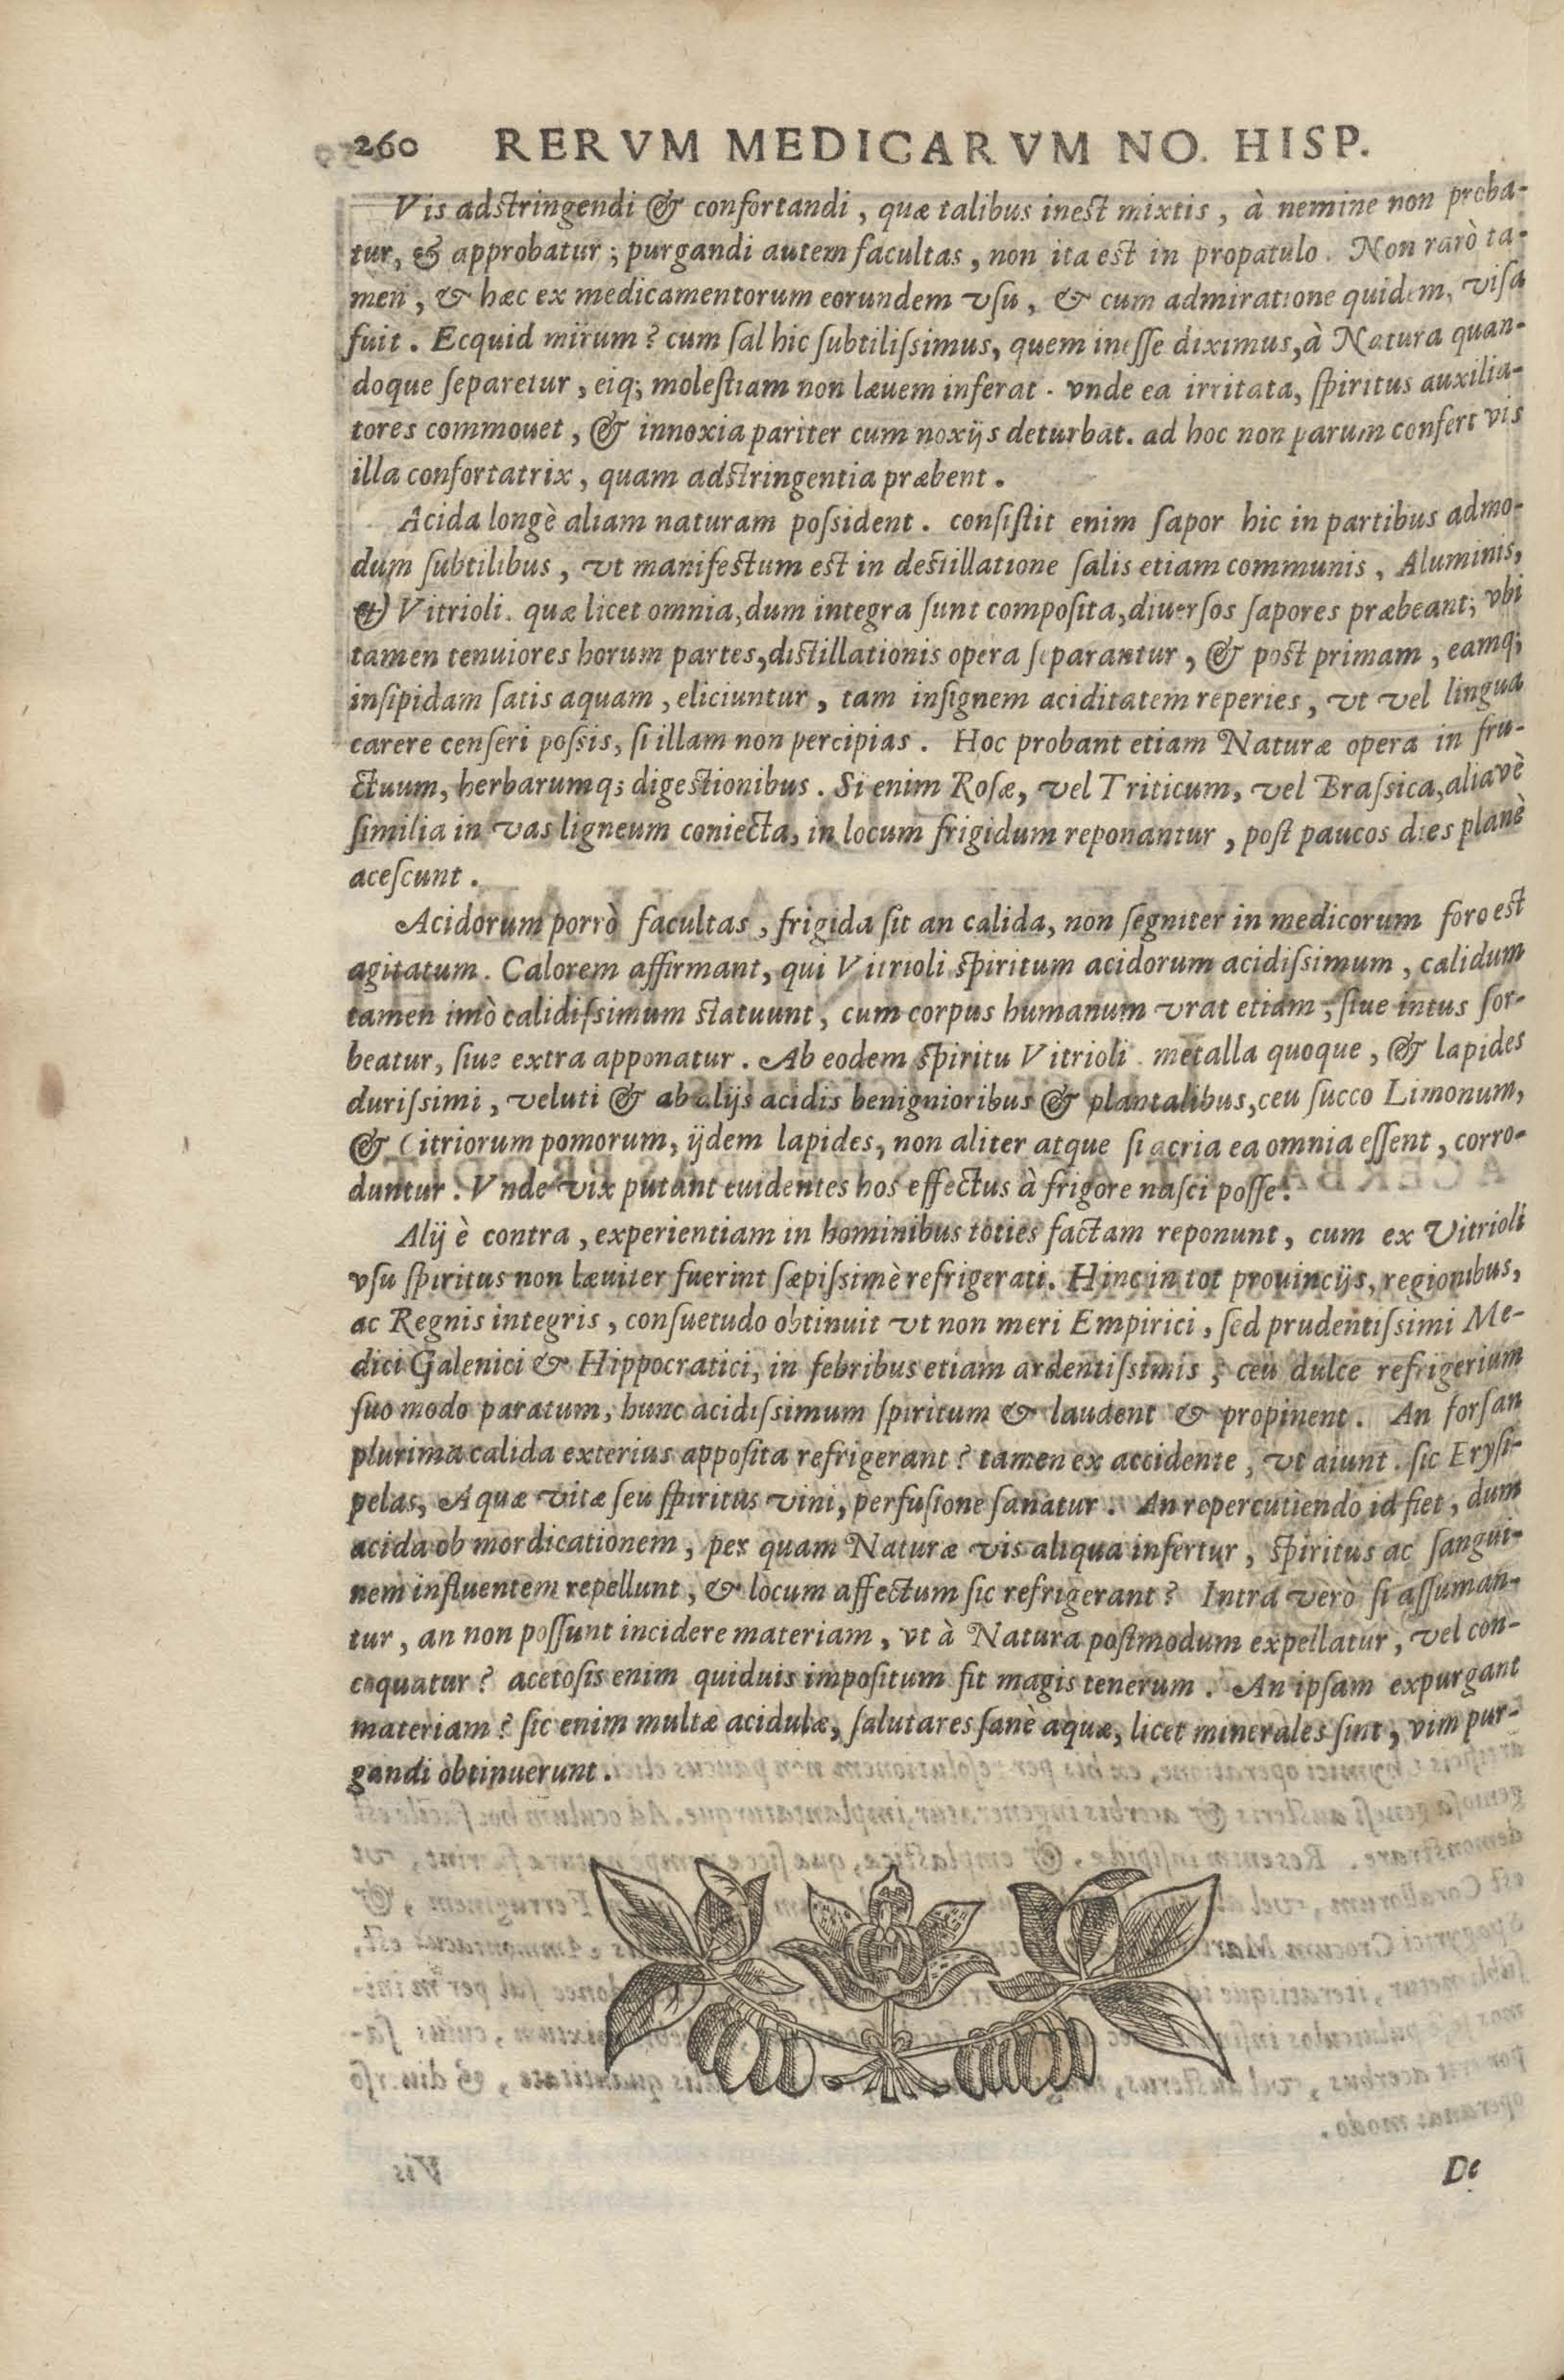 260 RERVM MEDICARVM NO. HISP.
Vis adstringendi & confortandi, quæ talibus inest mixtis, à nemine non proba-
tur, & approbatur; purgandi autem facultas, non ita est in propatulo. Non rarò ta-
men, & hæc ex medicamentorum eorundem vſu, & cum admiratione quidem, viſa
fuit. Ecquid mirum? cum ſal hic ſubtiliſsimus, quem ineſſe diximus, à Natura quan-
doque ſeparetur, eiq; moleſtiam non læuem inferat. vnde ea irritata, ſpiritus auxilia-
tores commouet, & innoxia pariter cum noxijs deturbat. ad hoc non parum confert vis
illa confortatrix, quam adstringentia præbent.
Acida longè aliam naturam poſsident. conſiſtit enim ſapor hic in partibus admo-
dum ſubtilibus, vt manifestum est in destillatione ſalis etiam communis, Aluminis,
& Vitrioli. quæ licet omnia, dum integra ſunt compoſita, diuerſos ſapores præbeant; vbi
tamen tenuiores horum partes, distillationis opera ſeparantur, & post primam, eamq;
inſipidam ſatis aquam, eliciuntur, tam inſignem aciditatem reperies, vt vel lingua
carere cenſeri poſsis, ſi illam non percipias. Hoc probant etiam Naturæ opera in fru-
ctuum, herbarumq; digestionibus. Si enim Roſæ, vel Triticum, vel Braſsica, aliavè
ſimilia in vas ligneum coniecta, in locum frigidum reponantur, poſt paucos dies planè
aceſcunt.
Acidorum porrò facultas, frigida ſit an calida, non ſegniter in medicorum foro est
agitatum. Calorem affirmant, qui Vitrioli ſpiritum acidorum acidiſsimum, calidum
tamen imò calidiſsimum statuunt, cum corpus humanum vrat etiam, ſiue intus ſor-
beatur, ſiue extra apponatur. Ab eodem ſpiritu Vitrioli metalla quoque, & lapides
duriſsimi, veluti & ab alijs acidis benignioribus & plantalibus, ceu ſucco Limonum,
& Citriorum pomorum, ijdem lapides, non aliter atque ſi acria ea omnia eſſent, corro-
duntur. Vnde vix putant euidentes hos effectus à frigore naſci poſſe.
Alij è contra, experientiam in hominibus toties factam reponunt, cum ex Vitrioli
vſu ſpiritus non læuiter fuerint ſæpiſsimè refrigerati. Hinc in tot prouincijs, regionibus,
ac Regnis integris, conſuetudo obtinuit vt non meri Empirici, ſed prudentiſsimi Me-
dici Galenici & Hippocratici, in febribus etiam ardentiſsimis, ceu dulce refrigerium
ſuo modo paratum, hunc acidiſsimum ſpiritum & laudent & propinent. An forſan
plurima calida exterius appoſita refrigerant? tamen ex accidente, vt aiunt. ſic Eryſi-
pelas, Aquæ vitæ ſeu ſpiritus vini, perfuſione ſanatur. An repercutiendo id fiet, dum
acida ob mordicationem, per quam Naturæ vis aliqua infertur, ſpiritus ac ſangui-
nem influentem repellunt, & locum affectum ſic refrigerant? Intra verò ſi aſſuman-
tur, an non poſſunt incidere materiam, vt à Natura poſtmodum expellatur, vel con-
coquatur? acetoſis enim quiduis impoſitum fit magis tenerum. An ipſam expurgant
materiam? ſic enim multæ acidulæ, ſalutares ſanè aquæ, licet minerales ſint, vim pur-
gandi obtinuerunt.
De